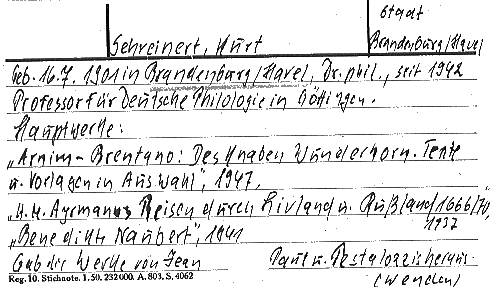 Stadt
Schreinert, Kurt
Brandenburg/Havel
Geb. 16.7. 1901 in Brandenburg/Havel, Dr. phil., seit 1942
Professor für Deutsche Philologie in Göttingen.
Hauptwerke:
„Arnim-Brentano: Des Knaben Wunderhorn. Texte
u. Vorlagen in Auswahl", 1947,
„H. M. Ayrmanns Reisen durch Livland u. Rußland 1666/70,
1937
„Benedikte Naubert", 1941
Gab die Werke von Jean Paul u. Pestalozzi heraus.
(wenden)
Reg. 10. Stichnote. 1. 50. 232000. A. 803. S. 4062